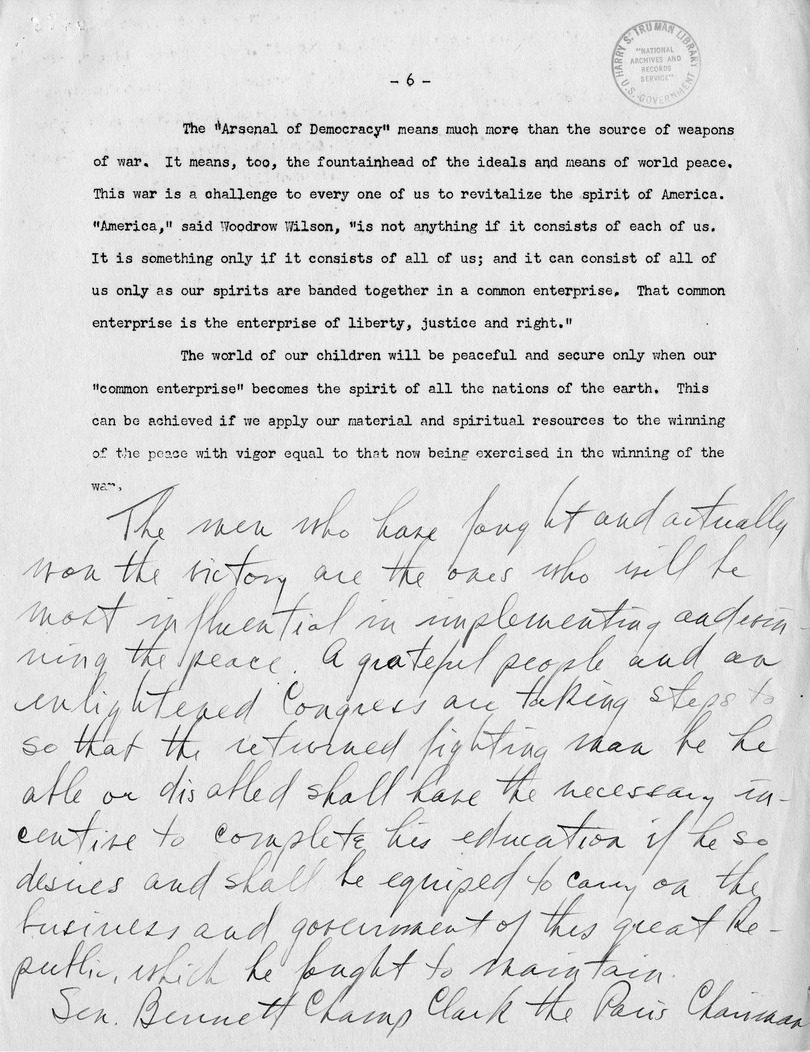 HARRY S. TRUMAN LIBRARY
"NATIONAL
ARCHIVES AND
RECORDS
SERVICE"
U.S. GOVERNMENT
- 6 -
The "Arsenal of Democracy" means much more than the source of weapons
of war. It means, too, the fountainhead of the ideals and means of world peace.
This war is a challenge to every one of us to revitalize the spirit of America.
"America," said Woodrow Wilson, "is not anything if it consists of each of us.
It is something only if it consists of all of us; and it can consist of all of
us only as our spirits are banded together in a common enterprise. That common
enterprise is the enterprise of liberty, justice and right."
The world of our children will be peaceful and secure only when our
"common enterprise" becomes the spirit of all the nations of the earth. This
can be achieved if we apply our material and spiritual resources to the winning
of the peace with vigor equal to that now being exercised in the winning of the
war.
The men who have fought and actually
won the victory are the ones who will be
most influential in implementing and win-
ning the peace. A grateful people and an
enlightened Congress are taking steps to
so that the returned fighting man be he
able or disabled shall have the necessary in-
centive to complete his education if he so
desires and shall be equiped to carry on the
business and government of this great Re-
public, which he fought to maintain.
Sen. Bennett Champ Clark the Paris Chairman